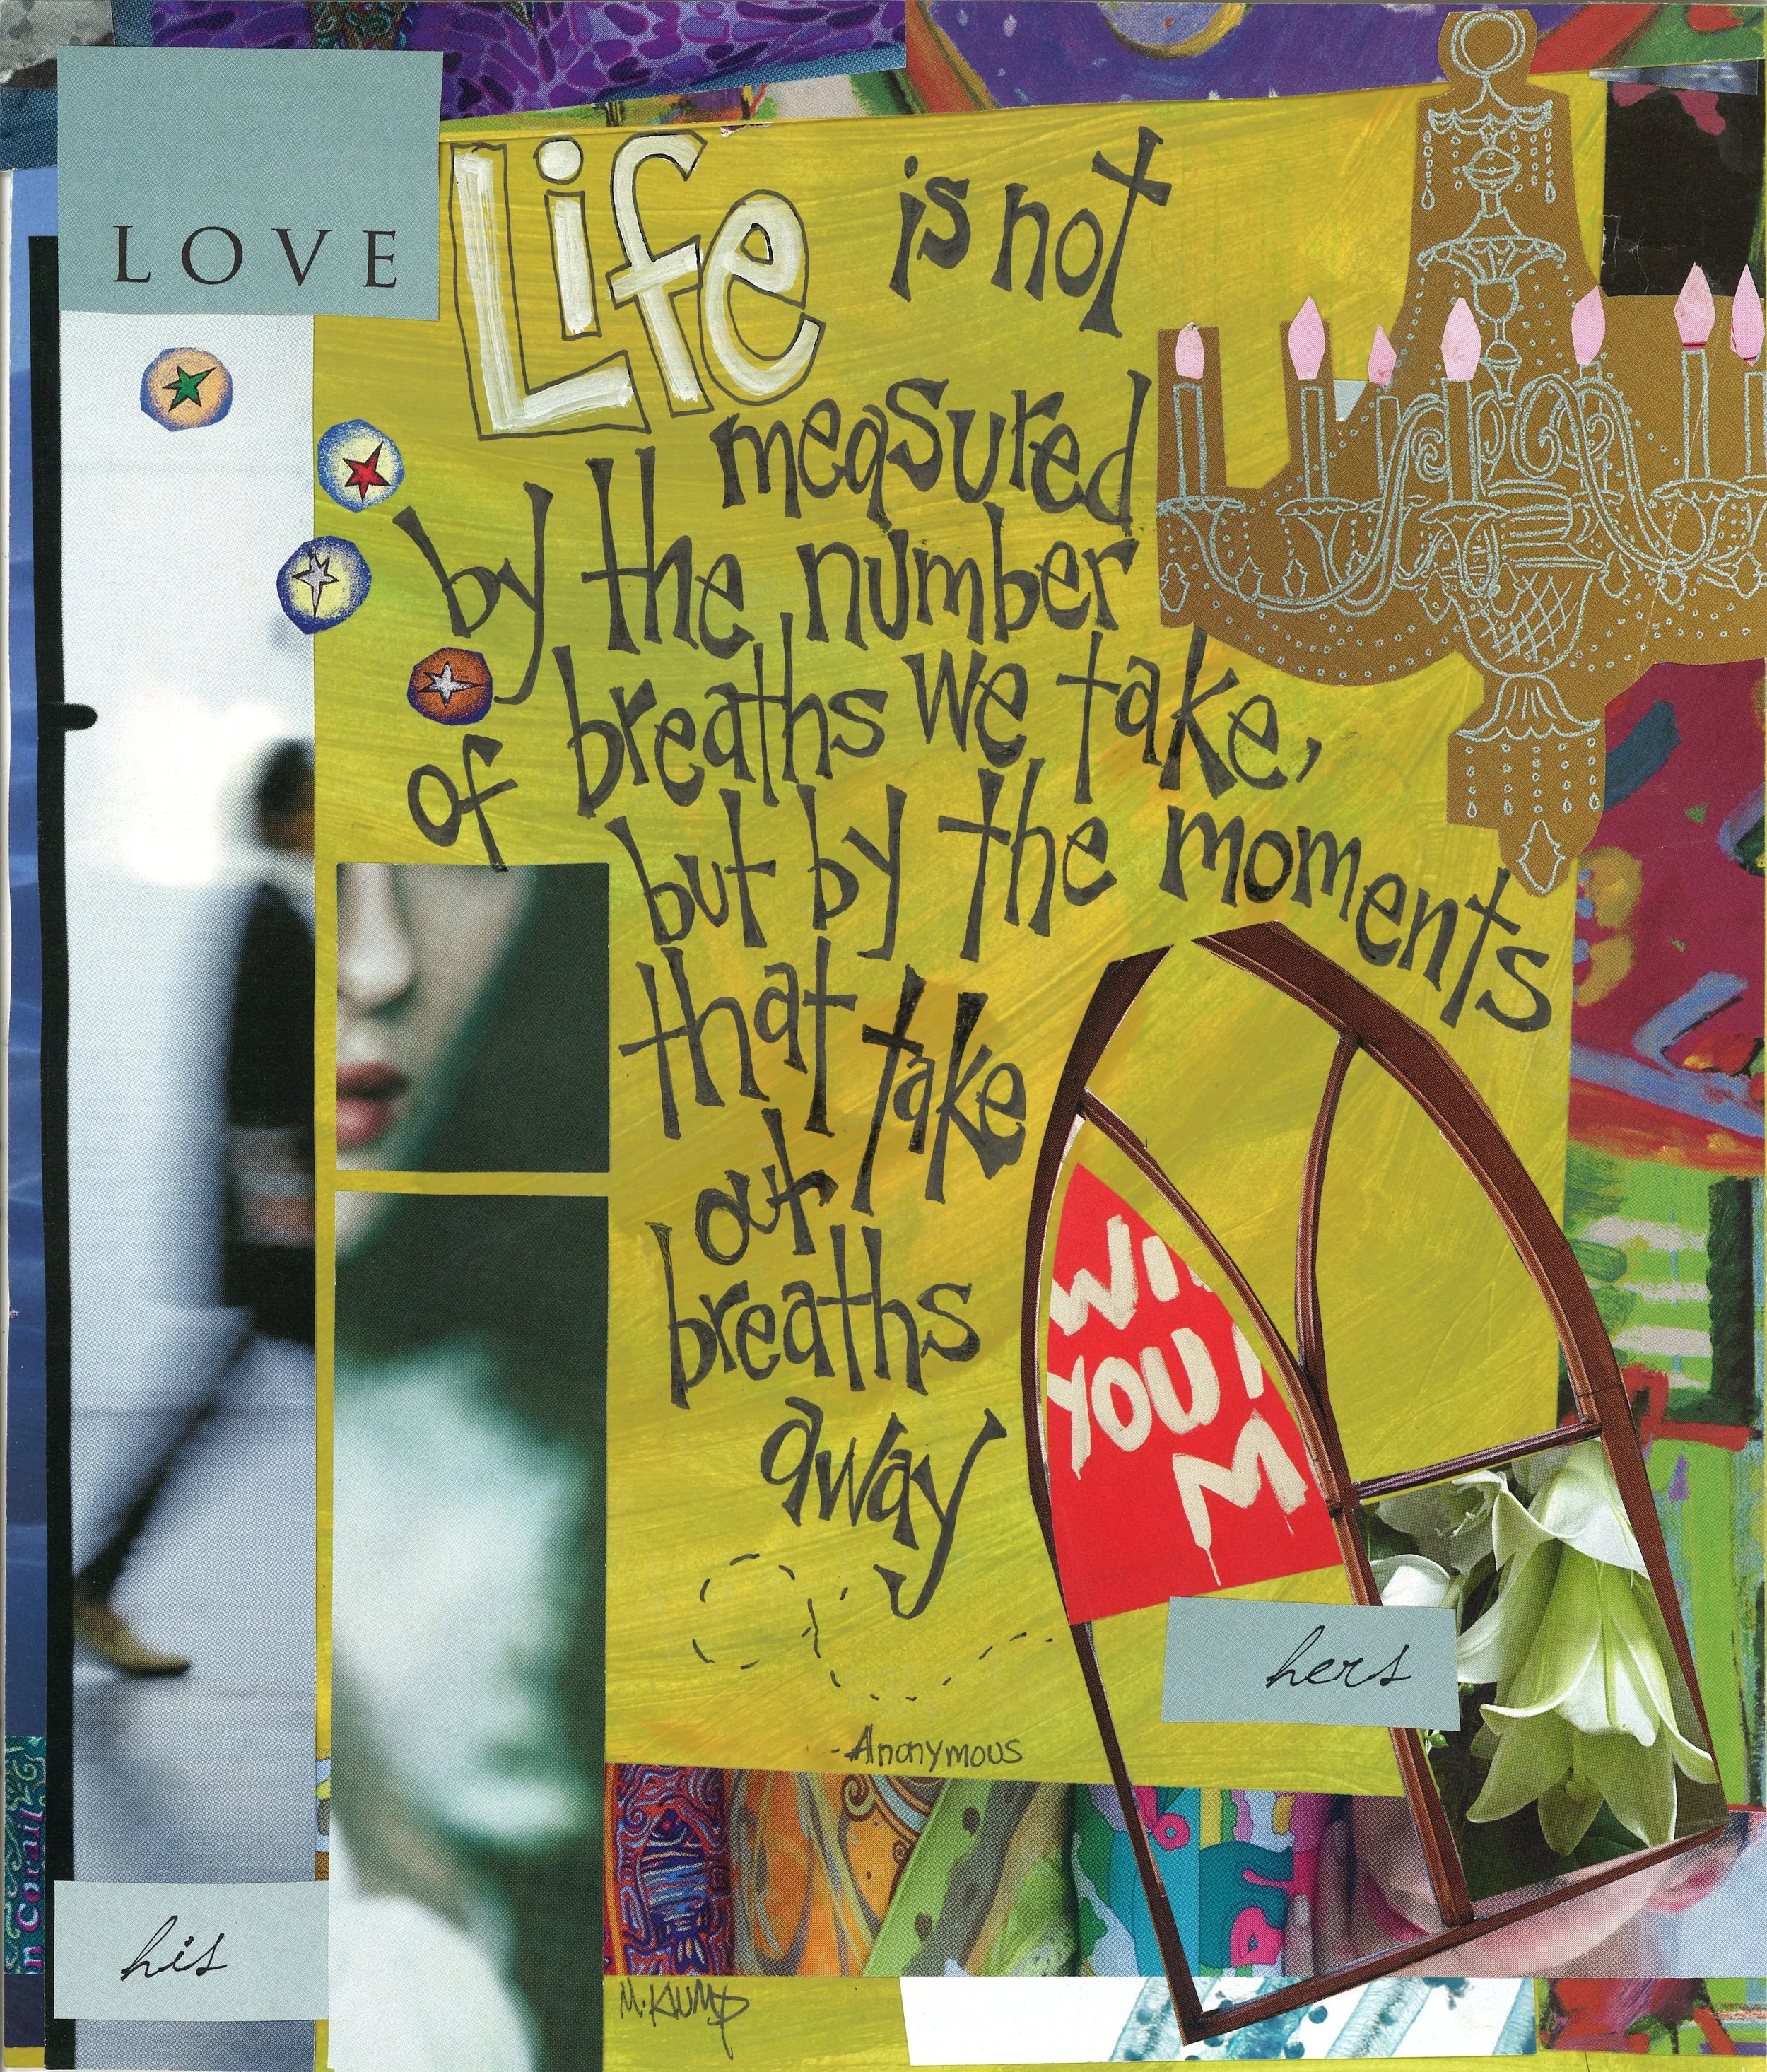 LOVE
Life is not
measured
by the number
of breaths we take,
but by the moments
that take
our breaths
away
WI
YOU
M
hers
- Anonymous
his
M. KLUMP